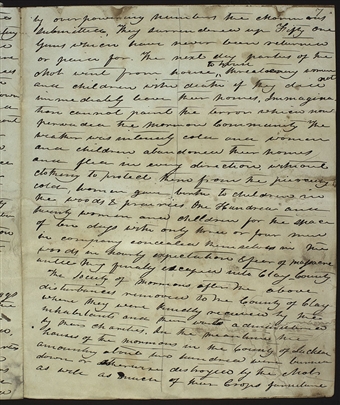 by overpowering numbers the Mormons
submitted, They surrendered up Fifty one
Guns which have never been returned
or paid for. The next day parties of the
Mob went from house to house threatening women
and children with death if they did not
immediately leave their homes. Immagina
tion cannot paint the terror which now
pervaded the Mormon Community The
weather was intensely cold women
and children abandoned their homes
and fled in every direction without
clothing to protect them from the piercing
cold, women gave birth to children in
the woods & praries One Hundred and
twenty women and children for the space
of ten days with only three or four men
in company concealed themselves in the
woods in hourly expectation & fear of massacre
untill they finally escaped into Clay County
The Society of Mormons after the above
disturbances removed to the County of Clay
where they were kindly received by the
inhabitants and their wants administered
by their charities, In the meantime the
houses of the Mormons in the County of Jackson
amounting about two hundred were burned
down or otherwise destroyed by the Mob
as well as much of their Crops furniture